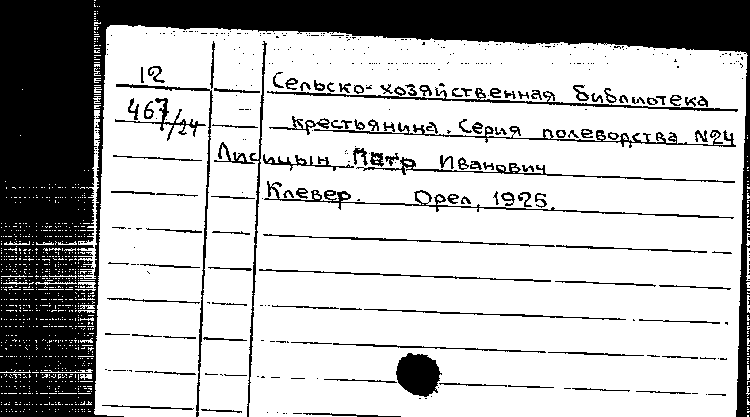 12
Сельско-хозяйственная библиотека
467/24
крестьянина. Серия полеводства. №24
Лисицын, Петр Иванович
Клевер. Орел, 1925.